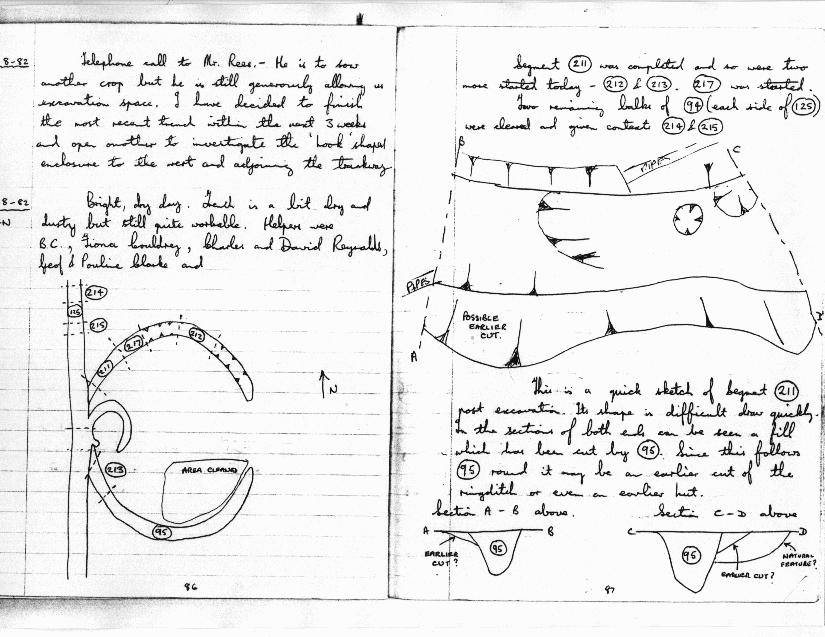 8-82
Telephone call to Mr. Rees. - He is to sow
another crop but he is still generously allowing us
excavation space. I have decided to finish
the most recent trench within the next 3 weeks
and open another to investigate the 'hook' shaped
enclosure to the west and adjoining the trackway
8-82
N
Bright, dry day. Trench is a bit dry and
dusty but still quite workable. Helpers were
B.C., Fiona Gouldrey, Charles and David Reynalds,
Geof & Pauline Clarke and
214
125
215
217
212
211
N
213
AREA CLEANED
95
86
Segment 211 was completed and so were two
more started today - 212 & 213. 217 was started.
Two remaining balks of 94 (each side of 125)
were cleared and given context 214 & 215
B
PIPES
C
PIPES
POSSIBLE
EARLIER
CUT.
A
D
This is a quick sketch of Segment 211
post excavation. Its shape is difficult draw quickly.
In the sections of both ends can be seen a fill
which has been cut by 95. Since this follows
95 round it may be an earlier cut of the
ringditch or even an earlier hut.
Section A - B above.
Section C - D above
A
B
95
EARLIER
CUT?
C
D
95
EARLIER CUT?
NATURAL
FEATURE?
87